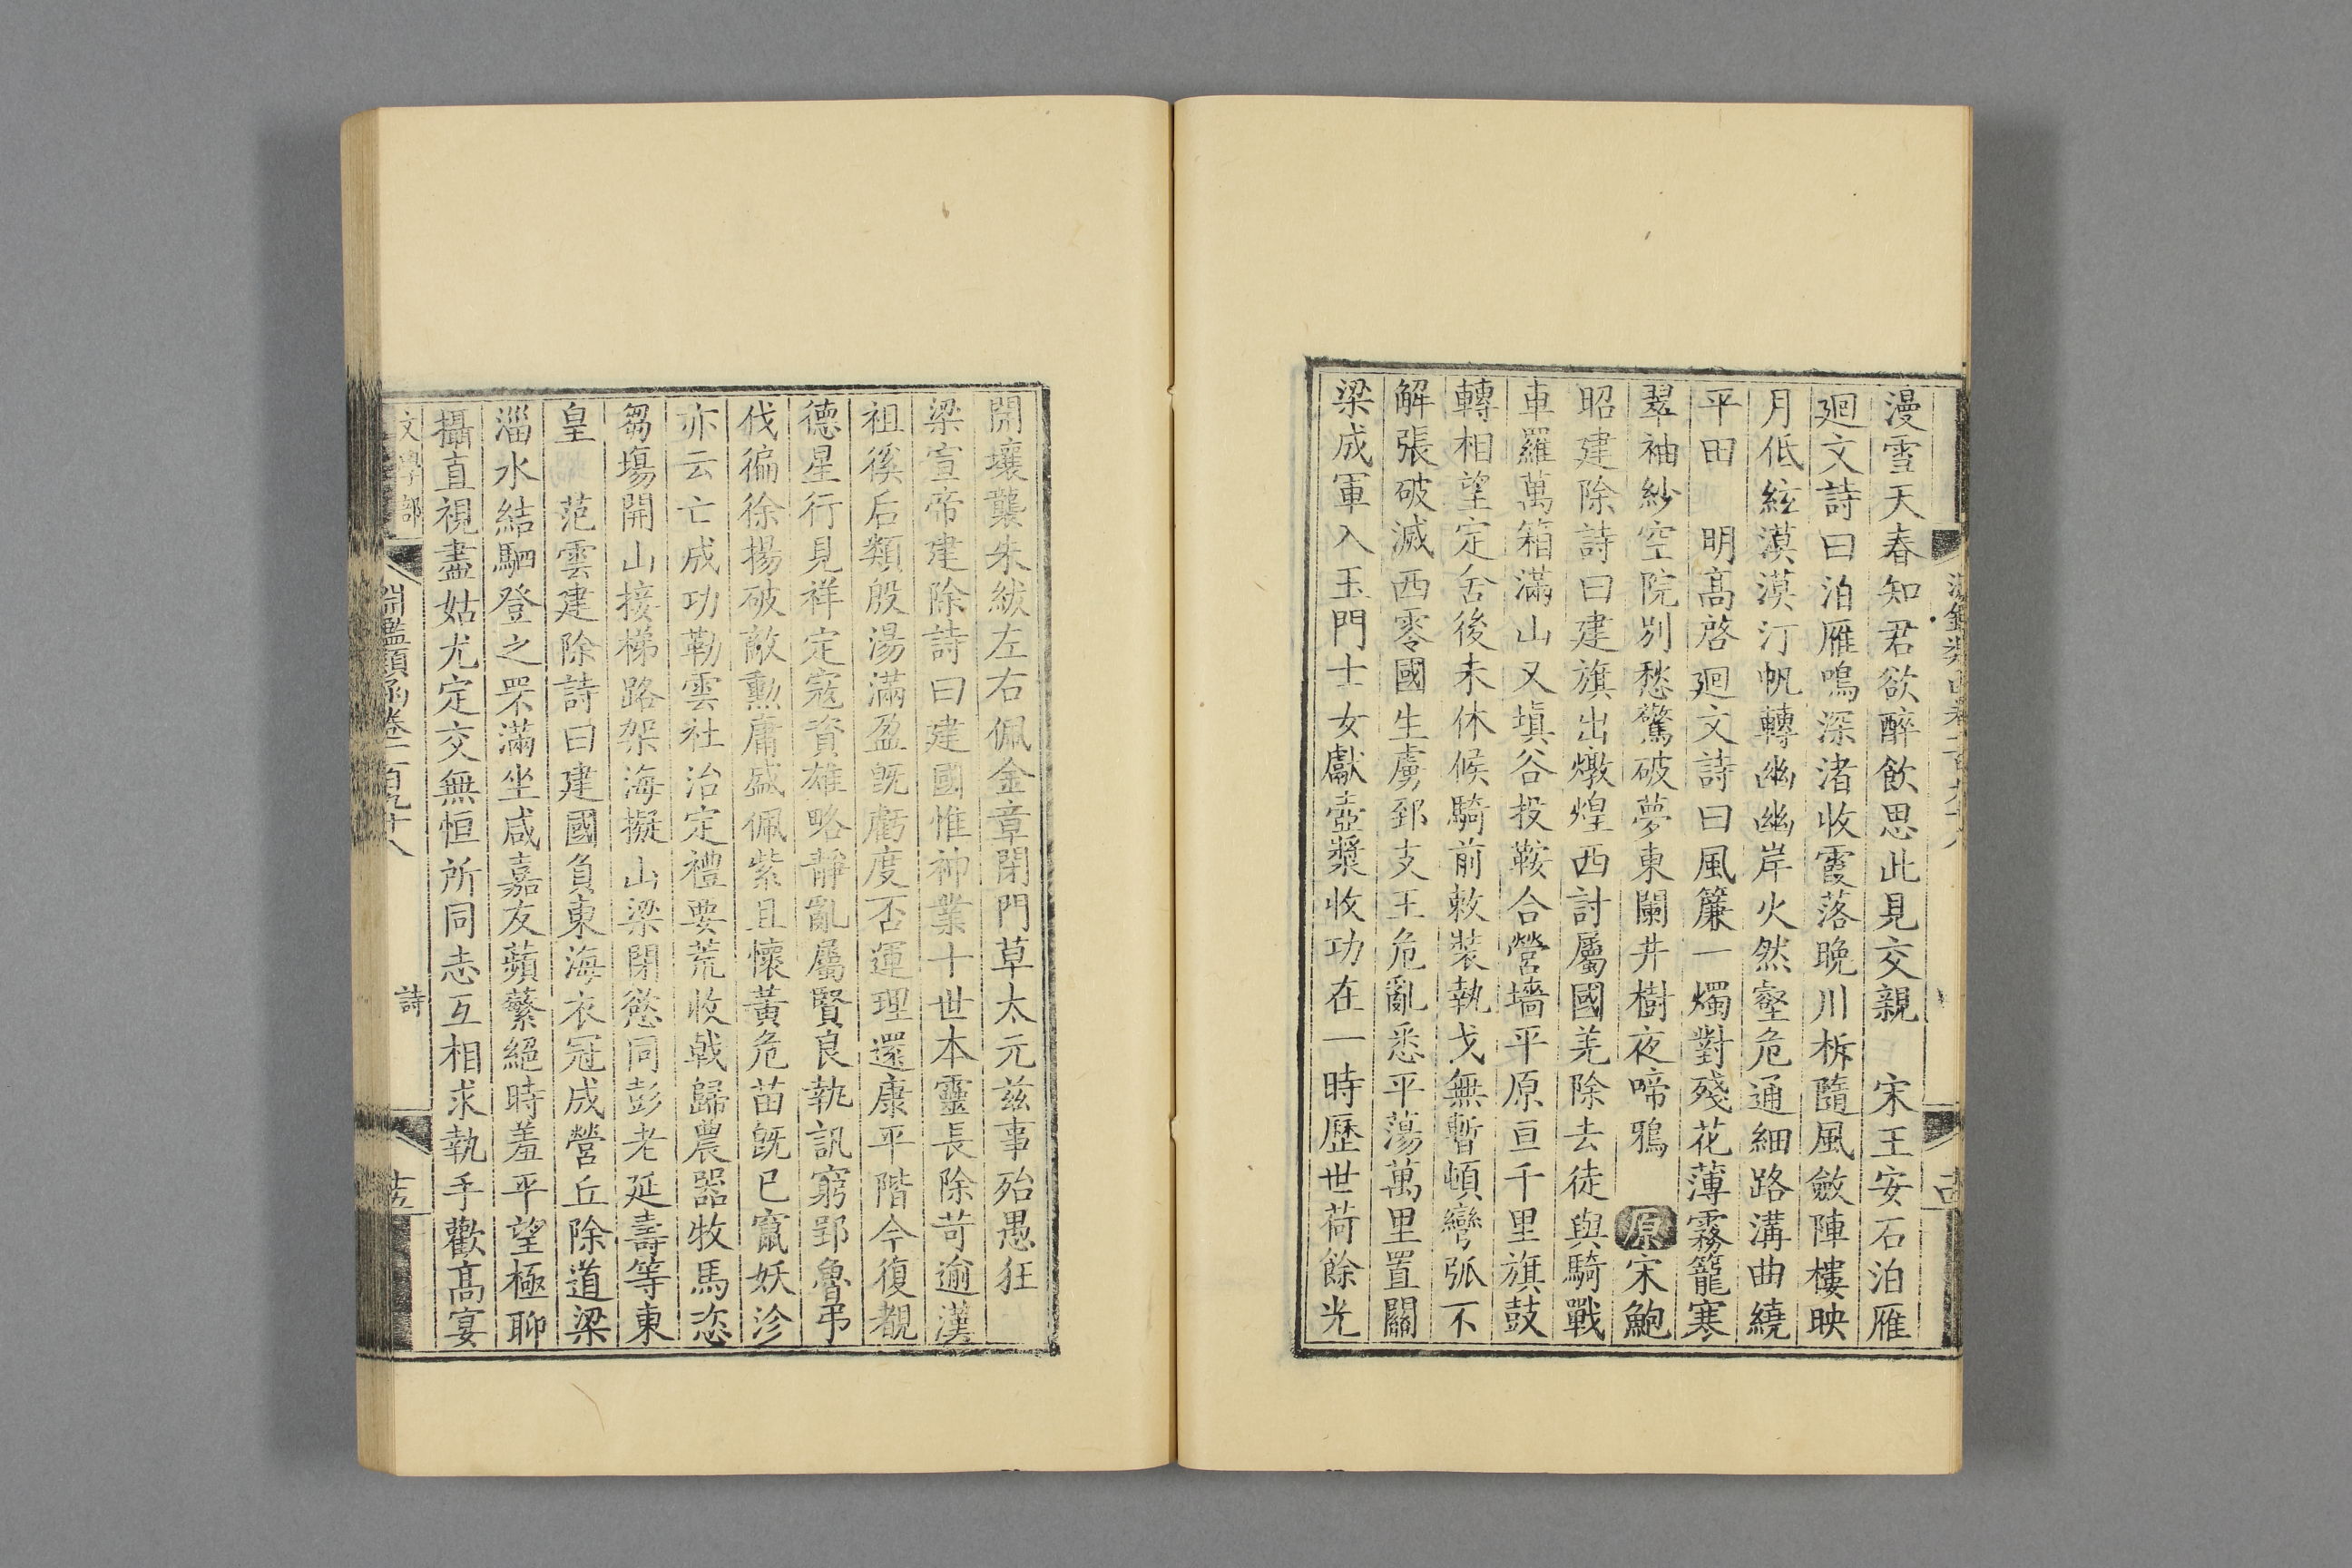 漫雪天春知君欲醉飲思此見交親　宋王安石泊雁
廻文詩曰泊雁鳴深渚收霞落晚川柝隨風斂陣樓映
月低絃漠漠汀帆轉幽幽岸火然壑危通細路溝曲繞
平田　明高啓廻文詩曰風簾一燭對殘花薄霧籠寒
翠袖紗空院別愁驚破夢東闌井樹夜啼鴉　原宋鮑
昭建除詩曰建旗出燉煌西討屬國羌除去徒與騎戰
車羅萬箱滿山又塡谷投鞍合營墻平原亘千里旗鼓
轉相望定舍後未休候騎前敕裝執戈無暫頓彎弧不
解張破滅西零國生虜郅支王危亂悉平蕩萬里置關
梁成軍入玉門士女獻壺漿收功在一時歷世荷餘光
開壤襲朱紱左右佩金章閉門草太元茲事殆愚狂
梁宣帝建除詩曰建國惟神業十世本靈長除苛逾漢
祖徯后類殷湯滿盈旣虧度否運理還康平階今復覩
德星行見祥定寇資雄略靜亂屬賢良執訊窮郢魯弔
伐徧徐揚破敵勲庸盛佩紫且懷黃危苗旣已竄妖沴
亦云亡成功勒雲社治定禮要荒收戟歸農器牧馬恣
芻塲開山接梯路架海擬山梁閉慾同彭老延壽等東
皇　范雲建除詩曰建國負東海衣冠成營丘除道梁
淄水結駟登之罘滿坐咸嘉友蘋蘩絕時羞平望極聊
攝直視盡姑尤定交無恒所同志互相求執手歡高宴
文學部　淵鑑類函卷二百九十八　詩　十五